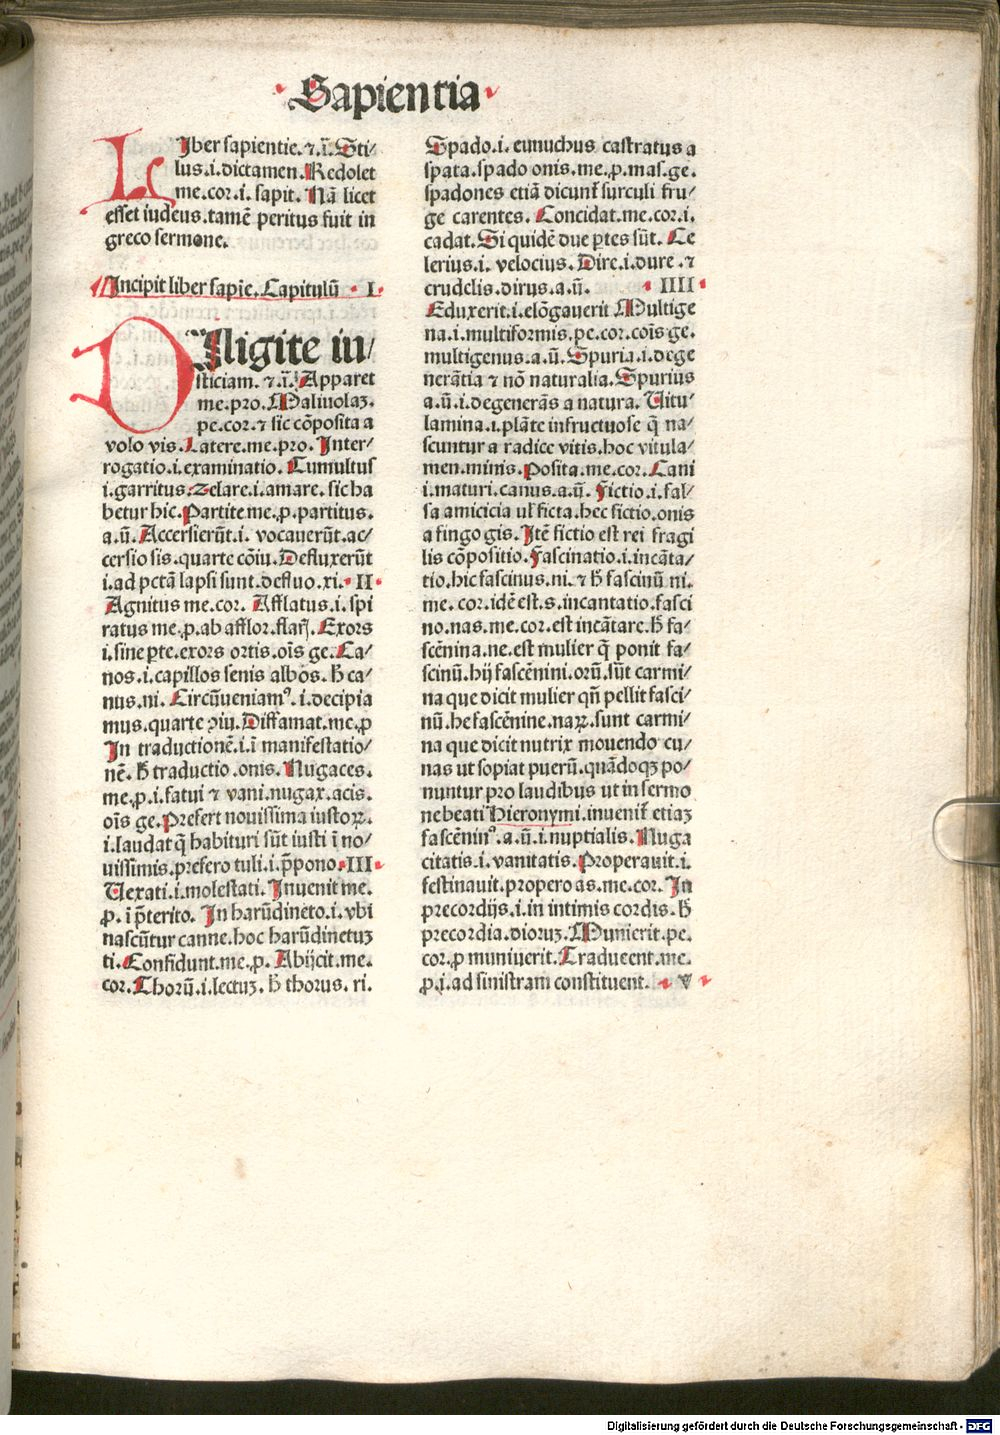 Sapientia
LIber sapientie. ⁊.ī. Sti/
lus.i.dictamen. Redolet
me.cor.i.sapit. Nā licet
esset iudeus.tamē peritus fuit in
greco sermone.
Incipit liber sapīe. Capitulū .I.
DIligite iu/
sticiam. ⁊.ī. Apparet
me.pro. Maliuolaʒ.
pe.cor.⁊ sic cōposita a
volo vis. Latere.me.pro. Inter/
rogatio.i.examinatio. Tumultus
i.garritus. Zelare.i.amare. sic ha
betur hic. Partite me.ꝓ.partitus.
a.ū. Accersierūt.i. vocauerūt.ac/
cersio sis.quarte cōiu. Defluxerūt
i.ad pctā lapsi sunt.defluo.xi. II
Agnitus me.cor. Afflatus.i.spi
ratus me.ꝓ.ab afflor.flar̄. Exors
i.sine ꝑte.exors ortis.oīs ge. Ca/
nos.i.capillos senis albos. h̄ ca/
nus.ni. Circūueniamꝰ.i.decipia
mus.quarte ↄiu. Diffamat.me.ꝓ
In traductionē.i.ī manifestatio/
nē. h̄ traductio.onis. Nugaces.
me.ꝓ.i.fatui ⁊ vani.nugax.acis.
oīs ge. Prefert nouissima iustoꝝ.
i.laudat q̄ habituri sūt iusti ī no/
uissimis.prefero tuli.i.p̄pono. III
Uexati.i.molestati. Inuenit me.
ꝓ. i p̄terito. In harūdineto.i.vbi
nascūtur canne.hoc harūdinetuʒ
ti. Confidunt.me.ꝓ. Abijcit.me.
cor. Thorū.i.lectuʒ. h̄ thorus. ri.
Spado.i. eunuchus castratus a
spata.spado onis.me.ꝓ.mas.ge.
spadones etiā dicunt̄ surculi fru/
ge carentes. Concidat.me.cor.i.
cadat. Si quidē due ꝑtes sūt. Ce
lerius.i. velocius. Dire.i.dure.⁊
crudelis.dirus.a.ū. IIII
Eduxerit.i.elōgauerit Multige
na.i.multiformis.pe.cor.coīs ge.
multigenus.a.ū. Spuria.i.dege
nerātia ⁊ nō naturalia. Spurius
a.ū.i.degenerās a natura. Uitu/
lamina.i.plāte infructuose q̄ na/
scuntur a radice vitis.hoc vitula/
men.minis. Posita.me.cor. Cani
i.maturi.canus.a.ū. Fictio.i.fal/
sa amicicia uł ficta.hec fictio.onis
a fingo gis. Itē fictio est rei fragi
lis cōpositio. Fascinatio.i.incāta/
tio.hic fascinus.ni.⁊ h̄ fascinū ni.
me. cor.idē est.s.incantatio.fasci
no.nas.me.cor.est incātare.h̄ fa/
scēnina.ne.est mulier q̄ ponit fa/
scinū.hij fascēnini.orū.sūt carmi/
na que dicit mulier qn̄ pellit fasci/
nū.he fascēnine.naꝝ.sunt carmi/
na que dicit nutrix mouendo cu/
nas ut sopiat puerū.quādoqʒ po/
nuntur pro laudibus ut in sermo
ne beati Hieronymi.inuenit̄ etiaʒ
fascēninꝰ.a.ū.i.nuptialis. Nuga
citatis.i.vanitatis. Properauit.i.
festinauit.propero as.me.cor. In
precordijs.i.in intimis cordis. h̄
precordia.dioruʒ. Munierit.pe.
cor.ꝓ muniuerit. Traducent.me.
ꝓ.i.ad sinistram constituent. V
Digitalisierung gefördert durch die Deutsche Forschungsgemeinschaft - DFG